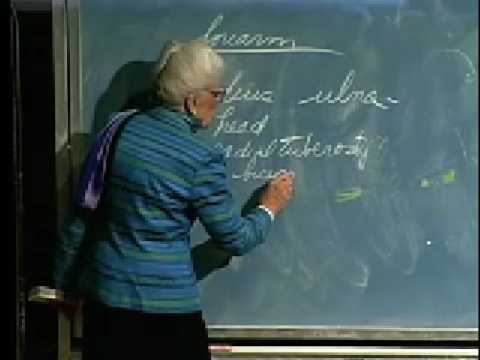 forearm
dius ulna
head
tuberosty